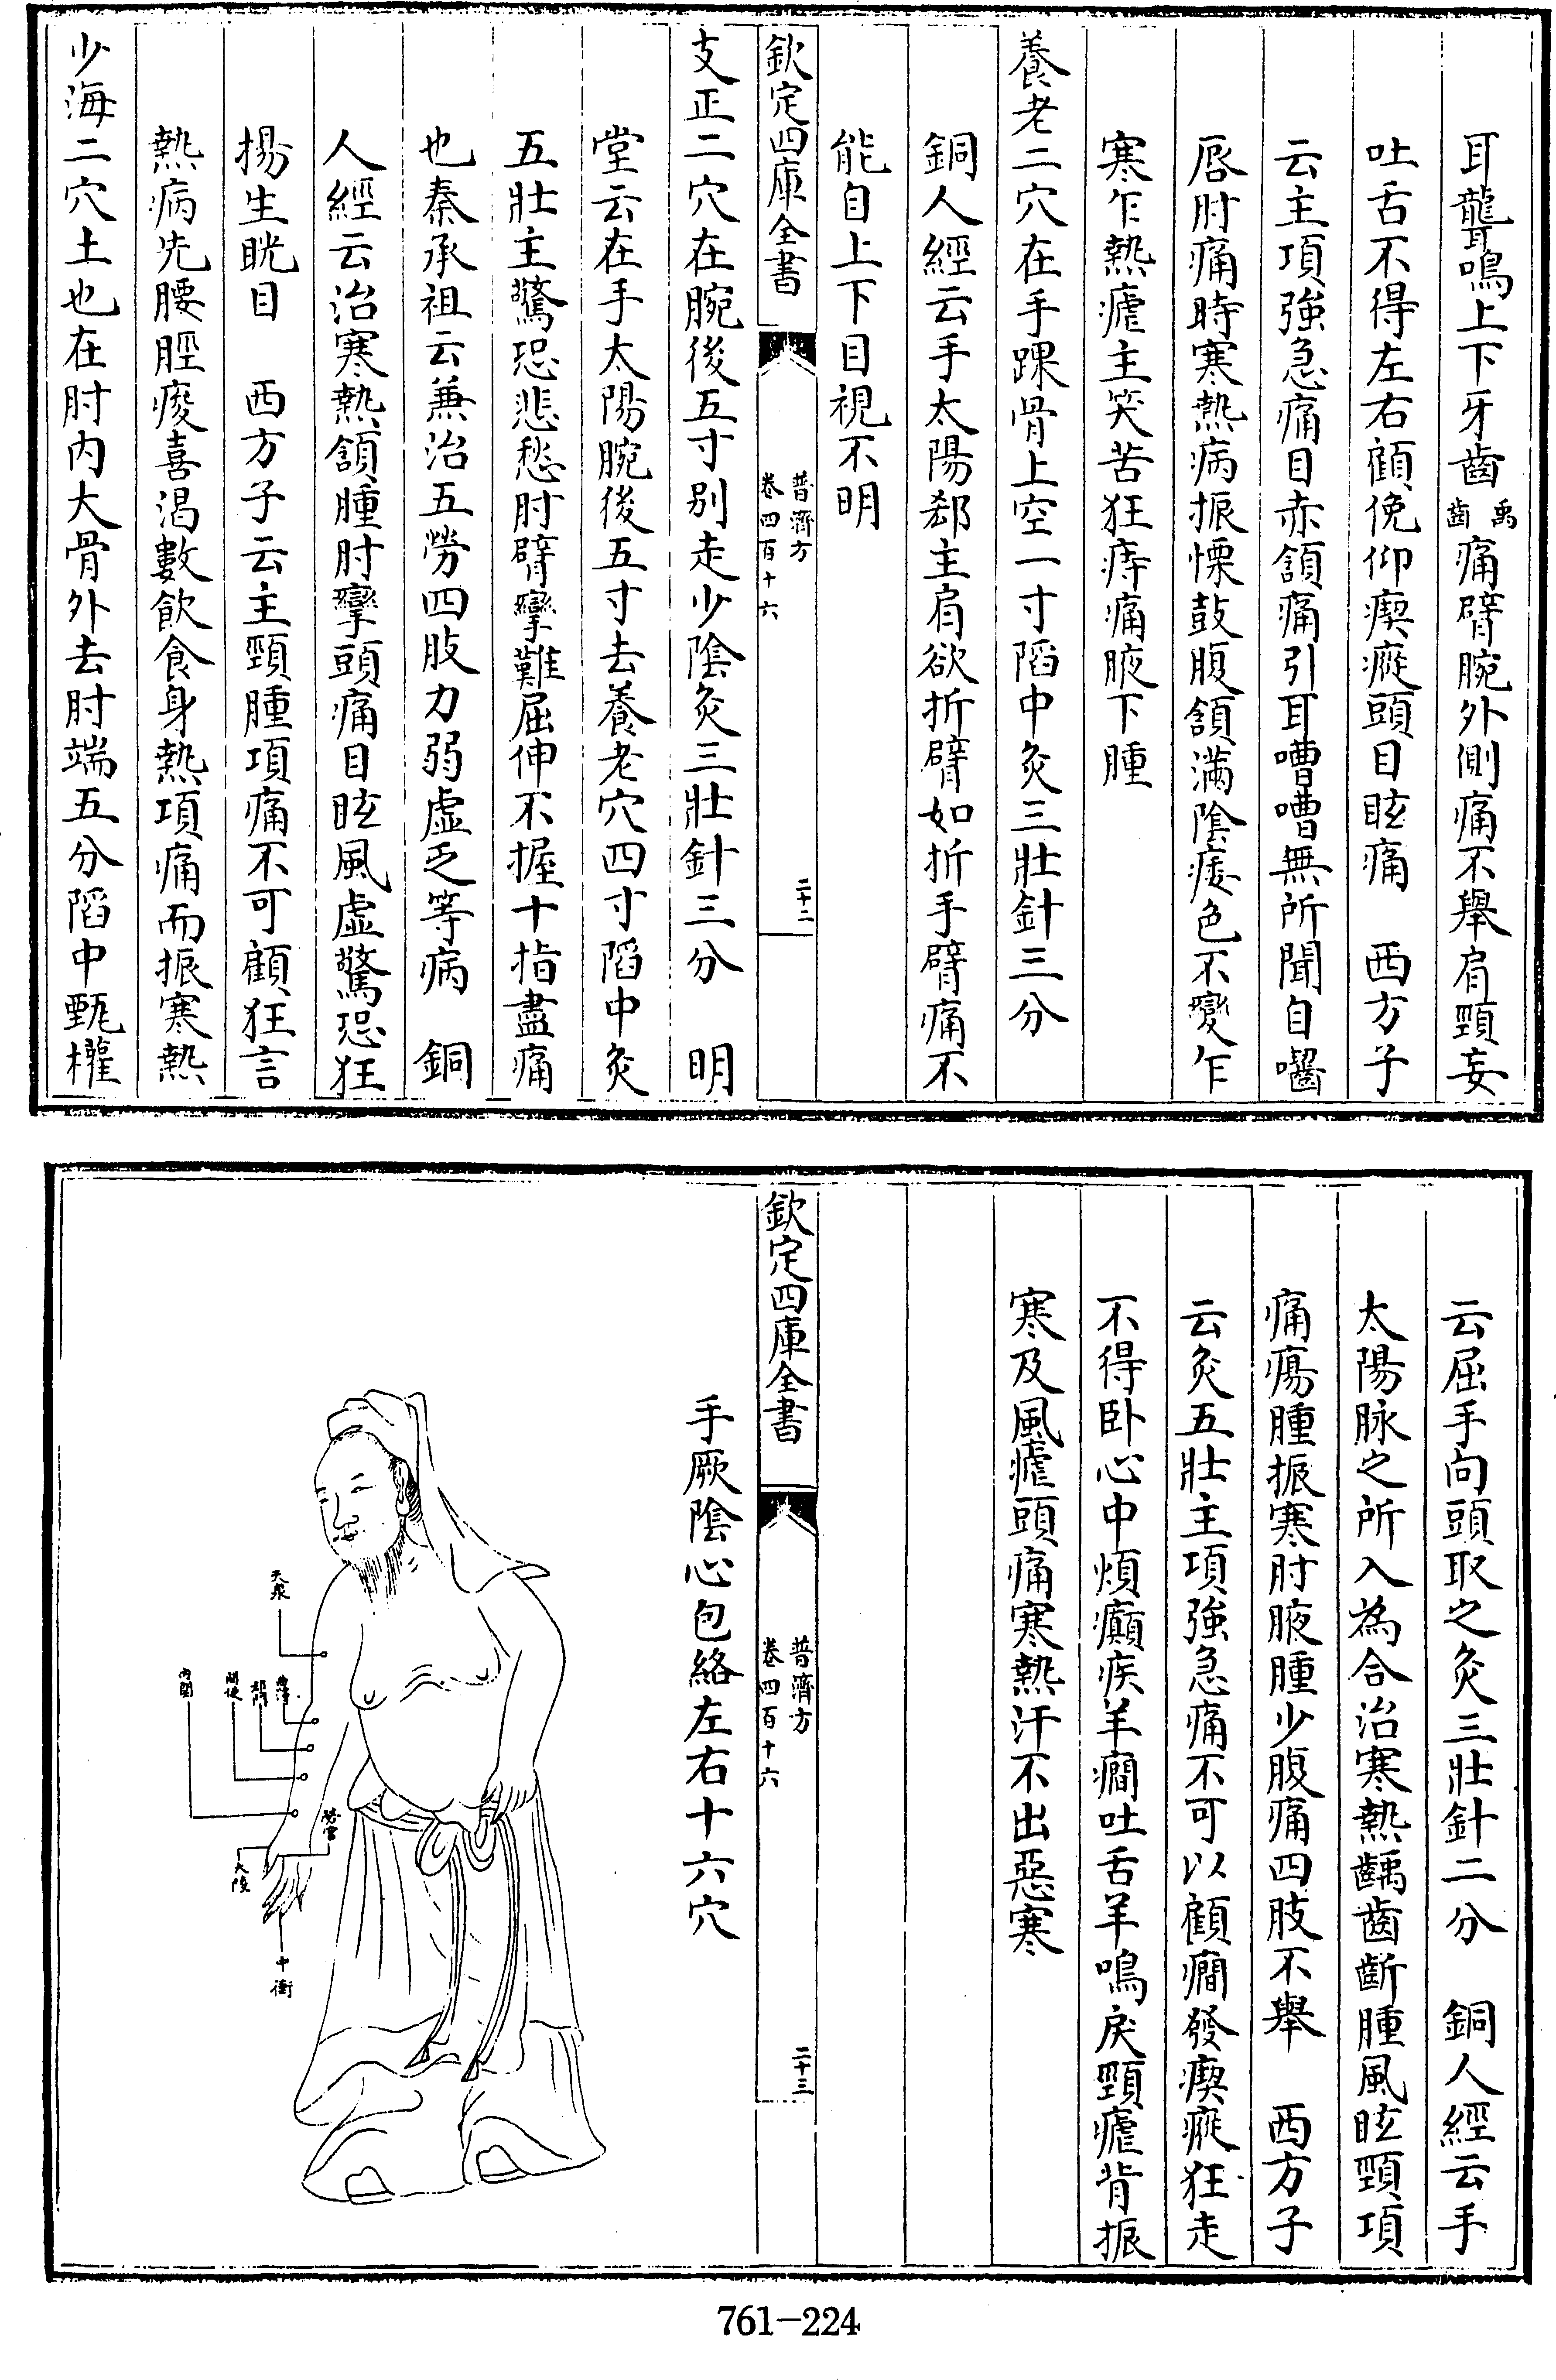 耳聾鳴上下牙齒齒禹痛臂腕外側痛不舉肩頸妄
吐舌不得左右顧俛仰瘈瘲頭目眩痛　西方子
云主項強急痛目赤頷痛引耳嘈嘈無所聞自嚙
唇肘痛時寒熱病振慄鼓腹頷滿陰痿色不變乍
寒乍熱瘧主笑苦狂痔痛腋下腫
養老二穴在手踝骨上空一寸陷中灸三壯針三分
銅人經云手太陽郄主肩欲折臂如折手臂痛不
能自上下目視不明
欽定四庫全書
普濟方
卷四百十六
二十二
支正二穴在腕後五寸别走少陰灸三壯針三分　明
堂云在手太陽腕後五寸去養老穴四寸陷中灸
五壯主驚恐悲愁肘臂攣難屈伸不握十指盡痛
也秦承祖云兼治五勞四肢力弱虛乏等病　銅
人經云治寒熱頷腫肘攣頭痛目眩風虛驚恐狂
揚生眬目　西方子云主頸腫項痛不可顧狂言
熱病先腰脛痠喜渴數飲食身熱項痛而振寒熱
少海二穴土也在肘内大骨外去肘端五分陷中甄權
云屈手向頭取之灸三壯針二分　銅人經云手
太陽脉之所入為合治寒熱齲齒齗腫風眩頸項
痛瘍腫振寒肘腋腫少腹痛四肢不舉　西方子
云灸五壯主項強急痛不可以顧癎發瘈瘲狂走
不得卧心中煩癲疾羊癎吐舌羊鳴戾頸瘧背振
寒及風瘧頭痛寒熱汗不出惡寒
欽定四庫全書
普濟方
卷四百十六
二十三
手厥陰心包絡左右十六穴
天泉
曲澤
郄門
間使
内關
勞宫
大陵
中衝
761-224